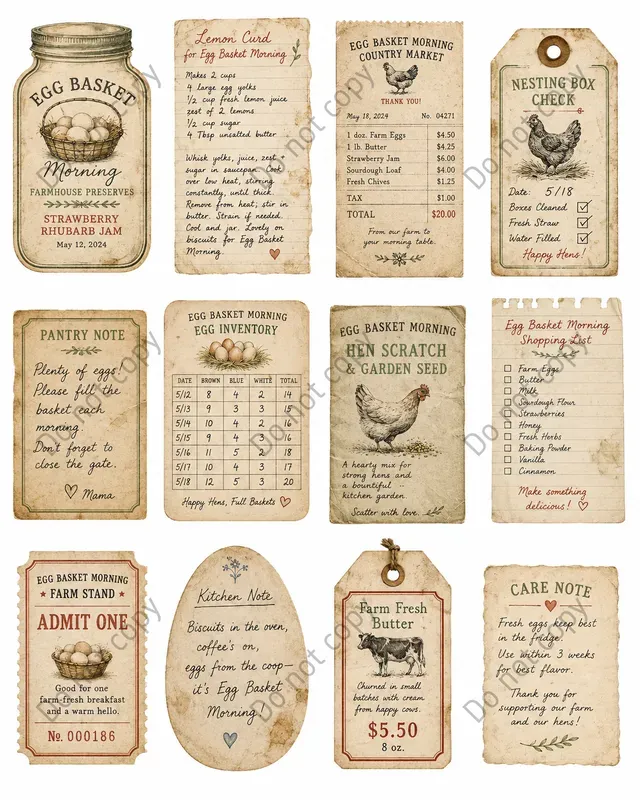 EGG BASKET
Morning
FARMHOUSE PRESERVES
STRAWBERRY
RHUBARB JAM
May 12, 2024
Lemon Curd
for Egg Basket Morning
Makes 2 cups
4 large egg yolks
1/2 cup fresh lemon juice
zest of 2 lemons
1/2 cup sugar
4 Tbsp unsalted butter
Whisk yolks, juice, zest,
sugar in saucepan. Cook
over low heat, stirring
constantly, until thick.
Remove from heat; stir in
butter. Strain if needed.
Cool and jar. Lovely on
biscuits for Egg Basket
Morning.
EGG BASKET MORNING
COUNTRY MARKET
THANK YOU!
May 18, 2024 No. 04271
1 doz. Farm Eggs $4.50
1 lb. Butter $4.25
Strawberry Jam $6.00
Sourdough Loaf $4.00
Fresh Chives $1.25
TAX $1.00
TOTAL $20.00
From our farm to
your morning table.
NESTING BOX
CHECK
Date: 5/18
Boxes Cleaned ☑
Fresh Straw ☑
Water Filled ☑
Happy Hens!
PANTRY NOTE
Plenty of eggs!
Please fill the
basket each
morning.
Don't forget to
close the gate.
♡ Mama
EGG BASKET MORNING
EGG INVENTORY
DATE BROWN BLUE WHITE TOTAL
5/12 8 4 2 14
5/13 9 3 3 15
5/14 10 4 2 16
5/15 9 4 3 16
5/16 11 5 2 18
5/17 10 4 3 17
5/18 12 5 3 20
Happy Hens, Full Baskets ♡
EGG BASKET MORNING
HEN SCRATCH
& GARDEN SEED
A hearty mix for
strong hens and
a bountiful
kitchen garden
Scatter with love.
Egg Basket Morning
Shopping List
☐ Farm Eggs
☐ Butter
☐ Milk
☐ Sourdough Flour
☐ Strawberries
☐ Honey
☐ Fresh Herbs
☐ Baking Powder
☐ Vanilla
☐ Cinnamon
Make something
delicious! ♡
EGG BASKET MORNING
★ FARM STAND ★
ADMIT ONE
Good for one
farm-fresh breakfast
and a warm hello.
No. 000186
Kitchen Note
Biscuits in the oven,
coffee's on,
eggs from the coop—
it's Egg Basket
Morning!
Farm Fresh
Butter
Churned in small
batches with cream
from happy cows.
$5.50
8 oz.
CARE NOTE
Fresh eggs keep best
in the fridge.
Use within 3 weeks
for best flavor.
Thank you for
supporting our farm
and our hens!
Do not copy
Do not copy
Do not copy
Do not copy
Do not copy
Do not copy
Do not copy
Do not copy
Do not copy
Do not copy
Do not copy
Do not copy